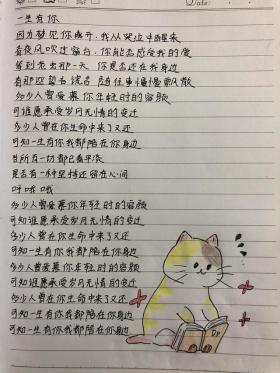 Date:
一生有你
因为梦见你离开 我从哭泣中醒来
看夜风吹过窗台 你能否感受我的爱
等到老去那一天 你是否还在我身边
看那些誓言谎言 随往事慢慢飘散
多少人曾爱慕你年轻时的容颜
可谁愿承受岁月无情的变迁
多少人曾在你生命中来了又还
可知一生有你我都陪在你身边
当所有一切都已看平淡
是否有一种坚持还留在心间
呼哦哦
多少人曾爱慕你年轻时的容颜
可知谁愿承受岁月无情的变迁
多少人曾在你生命中来了又还
可知一生有你我都陪在你身边
多少人曾爱慕你年轻时的容颜
可知谁愿承受岁月无情的变迁
多少人曾在你生命中来了又还
可知一生有你我都陪在你身边